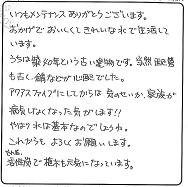 いつもメンテナンスありがとうございます。
おかげで おいしくて きれいな水で生活して
います。
うちは築40年という古い建物です。当然 配管
も古く、錆などが心配でした。
アクアスファイブにしてからは 気のせいか、家族が
病気しなくなった気がします!!
やはり 水は基本なのでしょうね。
これからも よろしくお願いします。
活性器で植木も元気になっています。